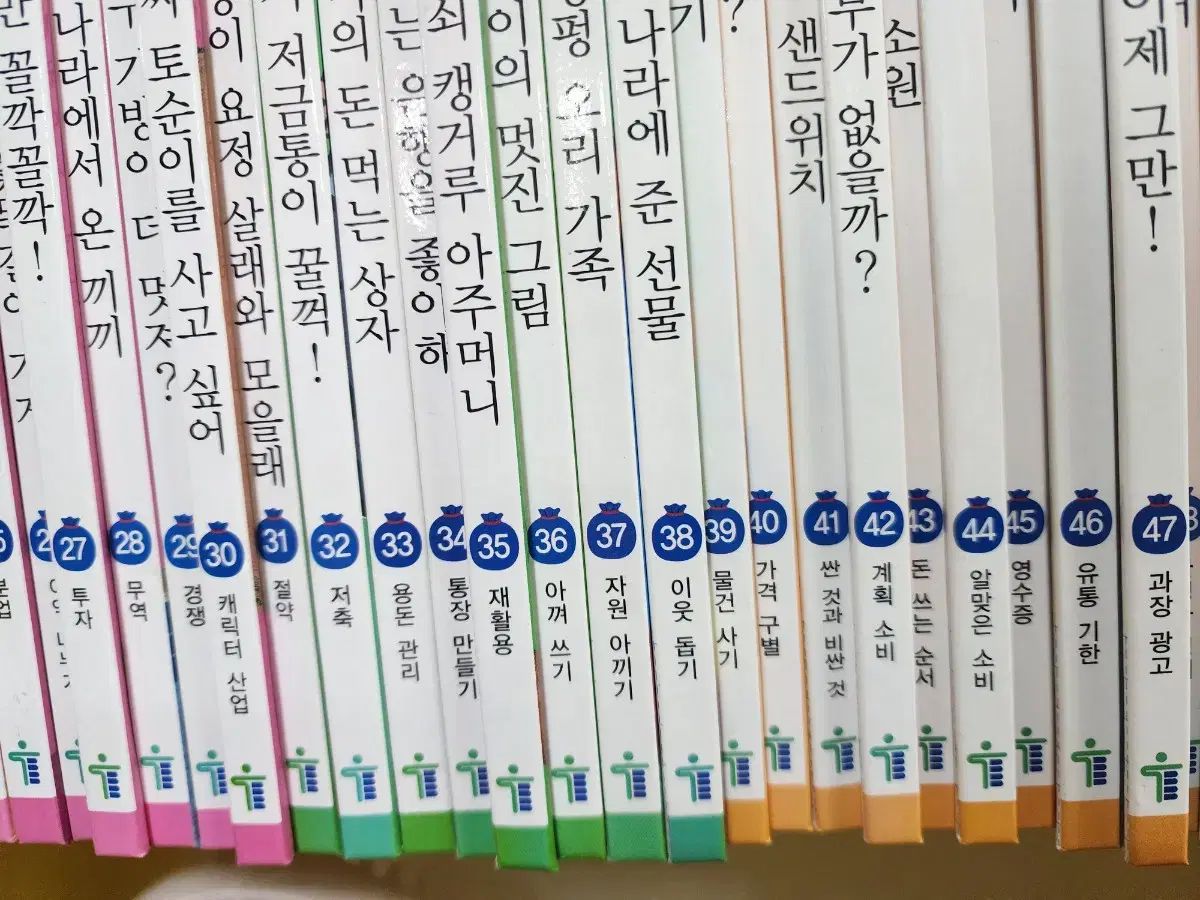 꼴깍꼴깍!
27
투자
나라에서 온 끼끼
28
무역
더 멋져?
29
경쟁
토순이를 사고 싶어
30
캐릭터 산업
요정 살래와 모을래
31
절약
저금통이 꿀꺽!
32
저축
돈 먹는 상자
33
용돈 관리
는 은행을 좋아하
34
통장 만들기
쇠 캥거루 아주머니
35
재활용
이의 멋진 그림
36
아껴 쓰기
펑 오리 가족
37
자원 아끼기
나라에 준 선물
38
이웃 돕기
기
39
물건 사기
?
40
가격 구별
샌드위치
41
싼 것과 비싼 것
가 없을까?
42
계획 소비
소원
43
돈 쓰는 순서
44
알맞은 소비
45
영수증
46
유통 기한
이제 그만!
47
과장 광고